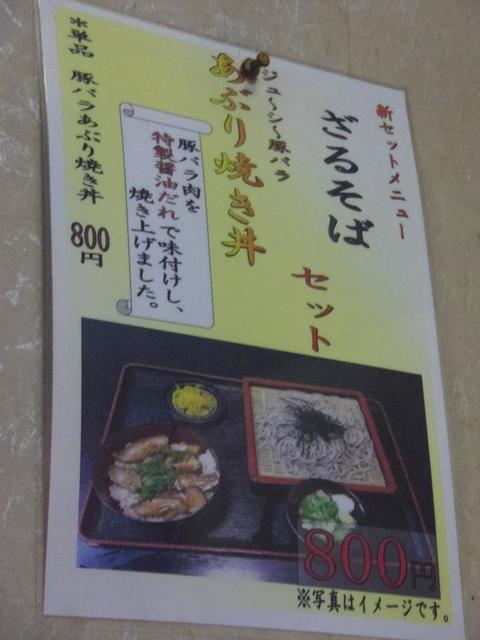 新セットメニュー
ざるそば
セット
ジュ〜シ〜豚バラ
あぶり焼き丼
豚バラ肉を
特製醤油だれで味付けし、
焼き上げました。
※単品 豚バラあぶり焼き丼
800円
800円
※写真はイメージです。